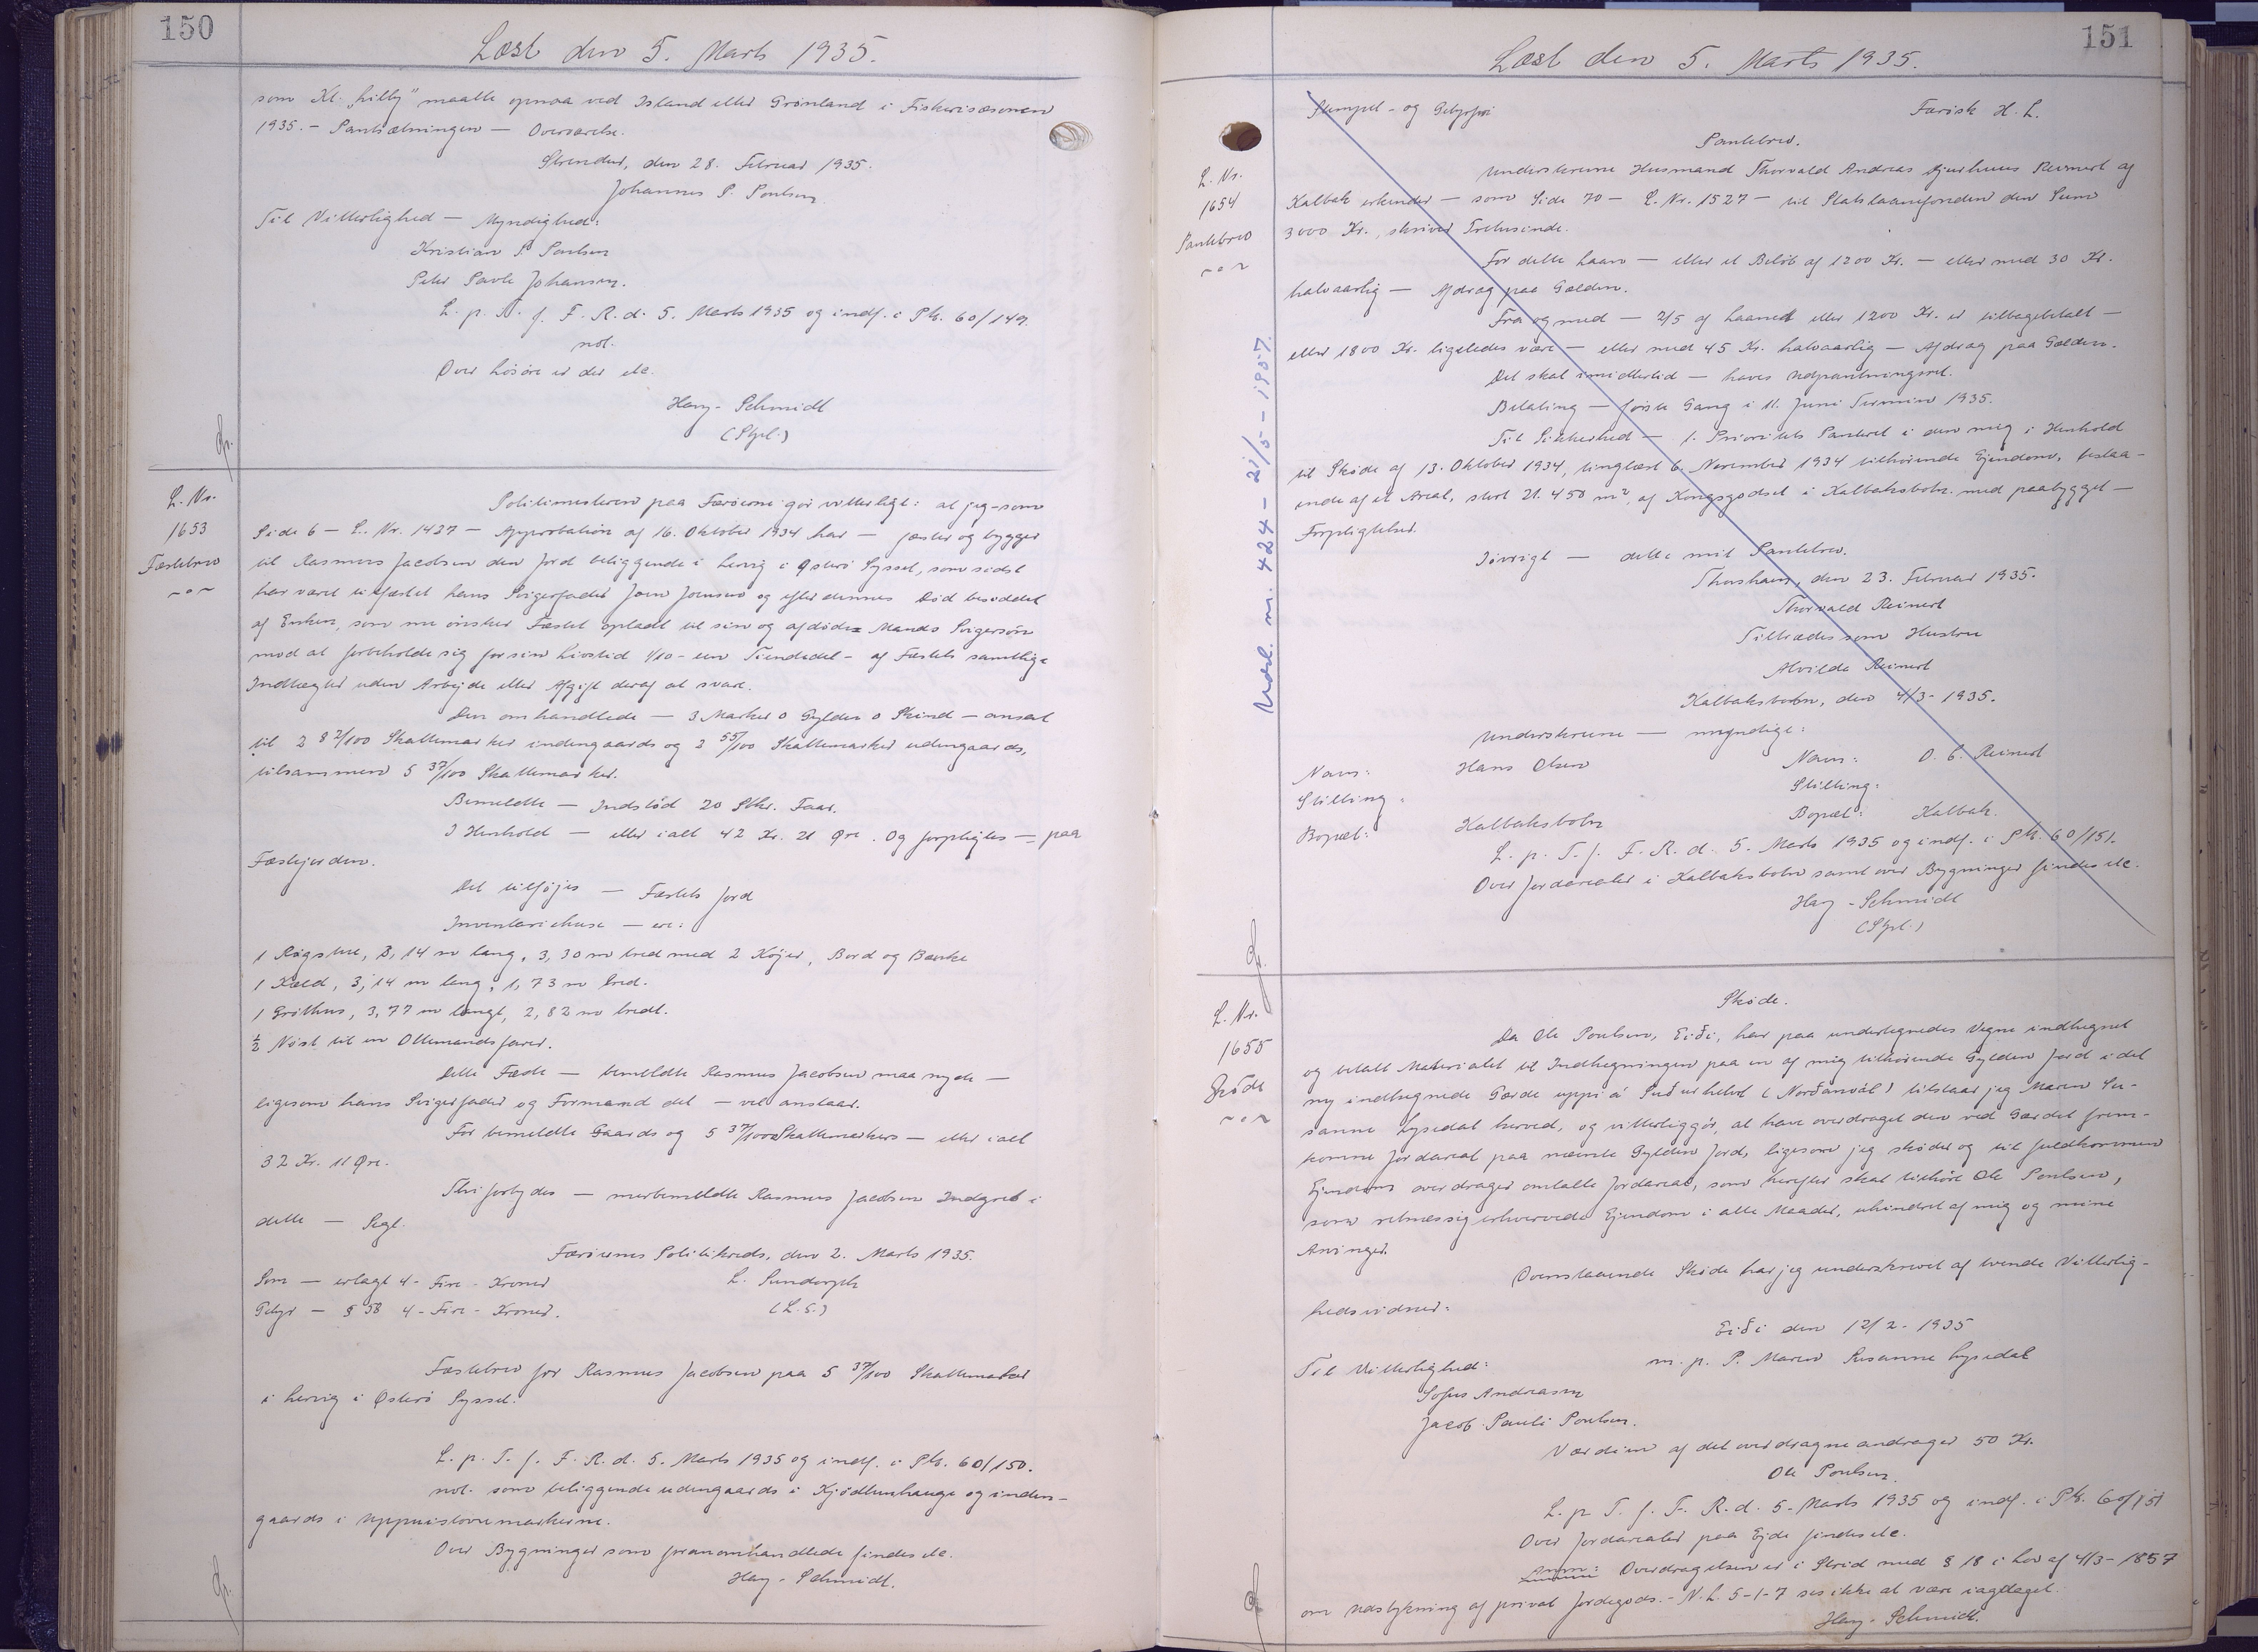 150
Læst den 5. Marts 1935.
som Kt. "Lilly" maatte opnaa ved Island eller Grønland i Fiskerisæsonen
1935. - Pantsætningen - Overværelse.
Strender, den 28. Februar 1935.
Johannes P. Poulsen
Til Vitterlighed - Myndighed:
Kristian P. Poulsen
Peter Pavle Johansen.
L. p. T. f. F. R. d. 5. Marts 1935 og indf. i Ptb. 60/149.
not.
Over Løsøre er der etc.
Hey-Schmidt
(Stpl.)
L. Nr.
1653
Fæstebrev
Politimesteren paa Færøerne gør vitterligt: at jeg - som
Side 6 - L. Nr. 1427 - Approbation af 16. Oktober 1934 har - fæster og bygger
til Rasmus Jacobsen den Jord beliggende i Lervig i Østerø Syssel, som sidst
har været tilfæstet hans Svigerfader Joen Joensen og efter dennes Død besiddet
af Enken, som nu ønsker Fæstet opladt til sin og afdøde Mands Svigersøn
mod at forbeholde sig for sin Livstid 1/10 - een Tiendedel - af Fæstets samtlige
Indtægter uden Arbejde eller Afgift deraf at svare.
Den omhandlede - 3 Marker 0 Gylden 0 Skind - ansat
til 2 82/100 Skattemarker indengaards og 2 55/100 Skattemarker udengaards,
tilsammen 5 37/100 Skattemarker.
Bemeldte - Indstød 20 Stkr. Faar.
I Henhold - eller ialt 42 Kr. 21 Øre. Og forpligtes - paa
Fæstejorden.
Det tilføjes - Fæstets Jord
Inventariehuse - ere:
1 Røgstue, 3,14 m lang, 3,30 m bred med 2 Køjer, Bord og Bænke
1 Kæld, 3,14 m lang, 1,73 m bred.
1 Gröthus, 3,77 m langt, 2,82 m bredt.
½ Nøst til en Ottemandsfarer.
Dette Fæste - bemeldte Rasmus Jacobsen maa nyde -
ligesom hans Svigerfader og Formand det - vel anstaar.
For bemeldte Gaards og 5 37/100 Skattemarkers - eller ialt
32 Kr. 11 Øre.
Thi forbydes - merbemeldte Rasmus Jacobsen Indgreb i
dette - Segl.
Færøernes Politikreds, den 2. Marts 1935.
Som - erlagt 4 - Fire - Kroner
L. Sundorph
Gebyr - § 58 4 - Fire - Kroner.
(L. S.)
Fæstebrev for Rasmus Jacobsen paa 5 37/100 Skattemarker
i Lervig i Østerø Syssel.
L. p. T. f. F. R. d. 5. Marts 1935 og indf. i Ptb. 60/150.
not. som beliggende udengaards i Kjödlunhauge og inden-
gaards i Uppuistovumarkerne.
Over Bygninger som foranomhandlede findes etc.
Hey-Schmidt.
151
Læst den 5. Marts 1935.
Stempel- og Gebyrfri
Færøsk H. L.
Pantebrev.
L. Nr.
1654
Pantebrev
Underskrevne Husmand Thorvald Andreas Reinert af
Kalbak erkender - som Side 70 - L. Nr. 1527 - til Statslaanefonden den Sum
3000 Kr., skriver Tretusinde.
For dette Laan - eller et Beløb af 1200 Kr. - eller med 30 Kr.
halvaarlig - Afdrag paa Gælden.
Fra og med - 2/5 af Laanet eller 1200 Kr. er tilbagebetalt -
eller 1800 Kr. ligeledes være - eller med 45 Kr. halvaarlig - Afdrag paa Gælden.
Det skal imidlertid - haves Udpantningsret.
Betaling - første Gang i 11. Juni Termin 1935.
Til Sikkerhed - 1. Prioritets Panteret i den mig i Henhold
til Skøde af 13. Oktober 1934, tinglæst 6. November 1934 tilhørende Ejendom, bestaa-
ende af et Areal, stort 21.450 m², af Kongsgodset i Kalbaksbotn med paabygget -
Forpligtelser.
Iøvrigt - dette mit Pantebrev.
Thorshavn, den 23. Februar 1935.
Thorvald Reinert
Tiltrædes som Hustru
Alvilda Reinert
Kalbaksbotn, den 4/3 - 1935.
Underskrevne - myndige:
Navn: Hans Olsen Navn: O. C. Reinert
Stilling: Stilling:
Bopæl: Kalbaksbotn Bopæl: Kalbak.
L. p. T. f. F. R. d. 5. Marts 1935 og indf. i Ptb. 60/151.
Over Jordarealer i Kalbaksbotn samt over Bygninger findes etc.
Hey-Schmidt
(Stpl.)
Udsl. nr. 424 - 21/5 - 1957.
Skøde.
L. Nr.
1655
Skøde
Da Ole Poulsen, Eiði, har paa undertegnedes Vegne indhegnet
og betalt Materialet til Indhegningen paa en af mig tilhørende Gylden Jord i det
ny indhegnede Gærde uppi á Suðurhelvt (Norðanvál) tilstaar jeg Maren Su-
sanne Lysedal herved, og vitterliggör, at have overdraget den ved Gærdet frem-
komne Jordareal paa nævnte Gylden Jord, ligesom jeg skøder og til fuldkommen
Ejendom overdrager omtalte Jordareal, som herefter skal tilhøre Ole Poulsen,
som retmæssig erhvervede Ejendom i alle Maader, uhindret af mig og mine
Arvinger.
Ovenstaaende Skøde har jeg underskrevet af tvende Vitterlig-
hedsvidner:
Eiði den 12/2 - 1935
Til Vitterlighed:
m. p. P. Maren Susanne Lysedal
Sofus Andreasen
Jacob Pauli Poulsen.
Værdien af det overdragne andrager 50 Kr.
Ole Poulsen.
L. p. T. f. F. R. d. 5. Marts 1935 og indf. i Ptb. 60/151
Over Jordarealer paa Ejde findes etc.
Anm: Overdragelsen er i Strid med § 18 i Lov af 4/3 - 1857
om Udstykning af privat Jordegods. - N. L. 5-1-7 ses ikke at være iagttaget.
Hey-Schmidt.